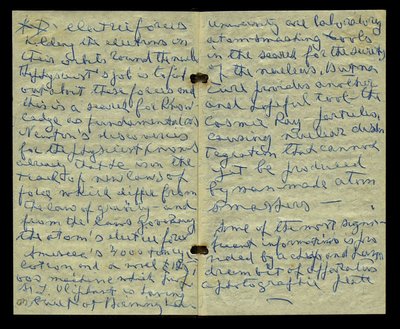 electric forces
holding the electrons in
their orbits round the nucleus
The physicist's job is to find
out about these forces and
this is a search for know
ledge as fundamental as
Newton's discoveries
for the physicist knows
he is on the
track of new laws of
force which differ from
the law of gravity and
from the laws governing
the atom's electric force
America's 4000 ton cyc
lotron and a
machine which Prof
M L Oliphant is having
built at Birmingham
university are laboratory
atomsmashing tools
in the search for the secrets
of the nucleus. But nature
provides another
and helpful tool the
Cosmic Ray particles
causing nuclear disin
tegration that cannot
yet be produced
by man-made atom
smashers —
Some of the most signi
ficant information is pro
vided by a cheap and
bit of apparatus
a photographic plate